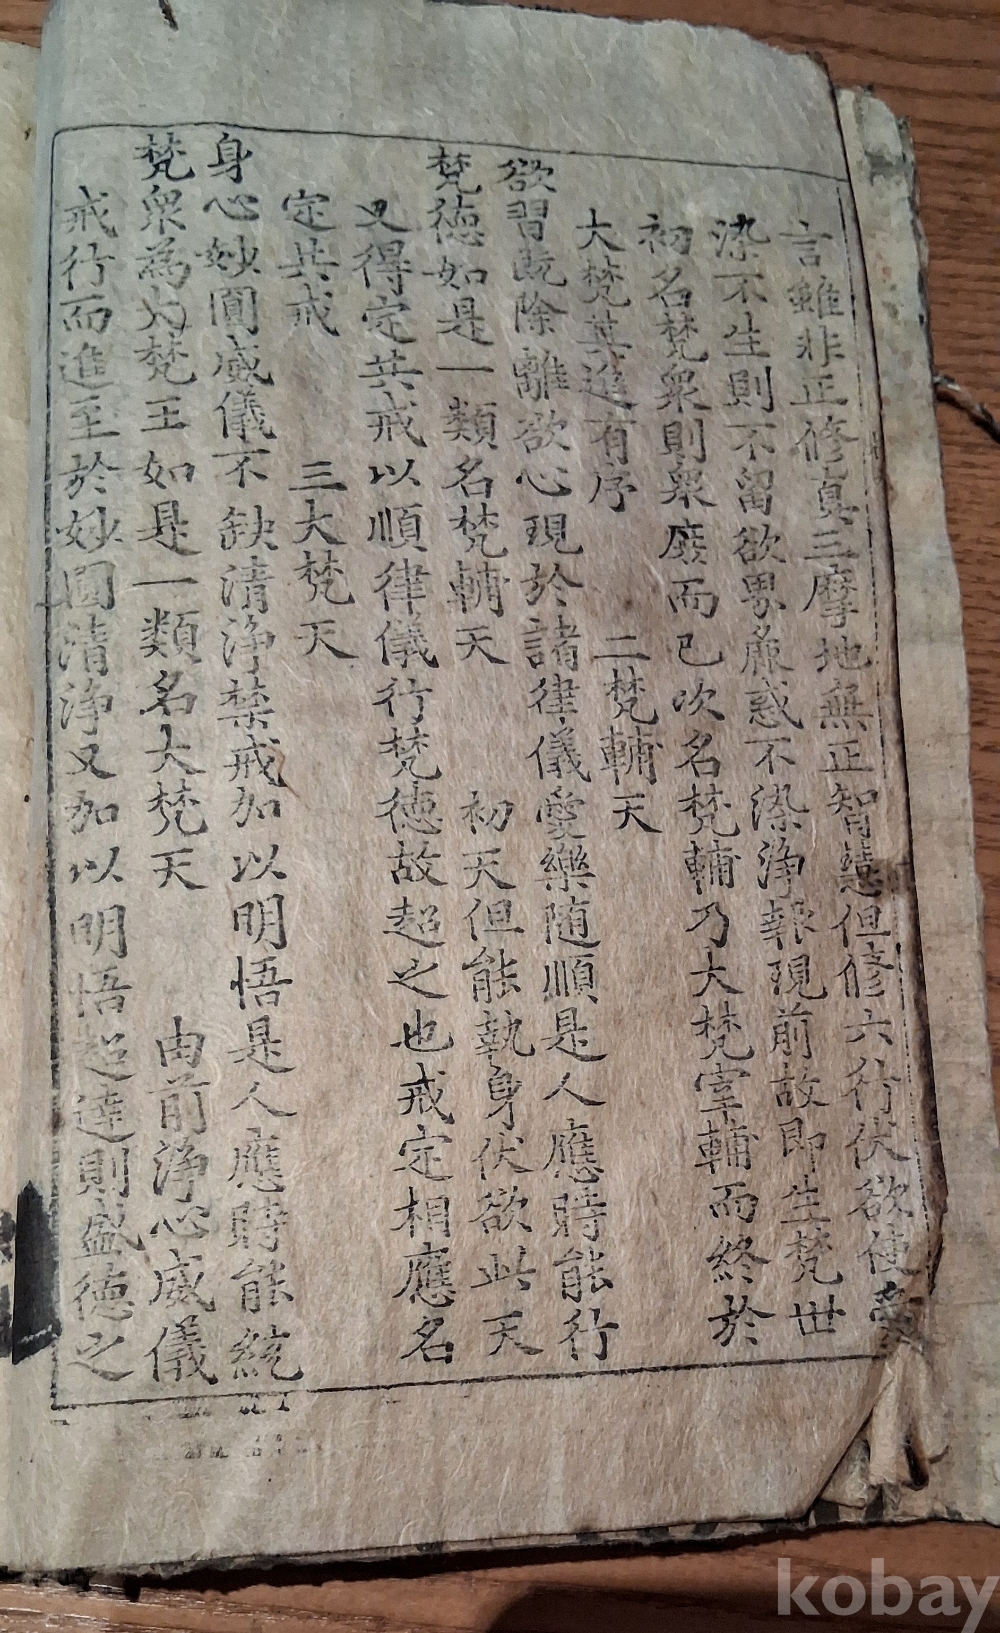 言雖非正修真三摩地無正智慧但修六行伏欲使愛
染不生則不留欲界麁惑不染淨報現前故即生梵世
初名梵衆則衆庶而已次名梵輔乃大梵宰輔而終於
大梵其進有序　二梵輔天
欲習既除離欲心現於諸律儀愛樂随順是人應時能行
梵德如是一類名梵輔天　初天但能執身伏欲此天
又得定共戒以順律儀行梵德故超之也戒定相應名
定共戒　三大梵天
身心妙圓威儀不缺清淨禁戒加以明悟是人應時能統
梵衆為大梵王如是一類名大梵天　由前淨心威儀
戒行而進至於妙圓清淨又加以明悟超達則盛德之
kobay